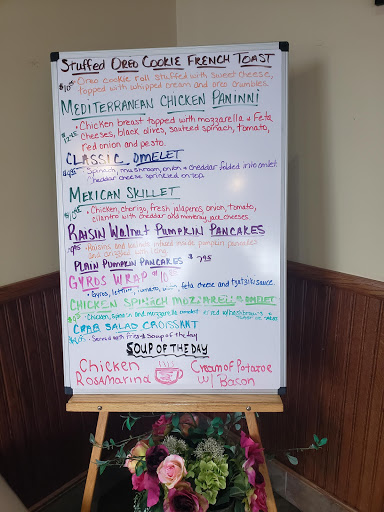 Stuffed Oreo Cookie French Toast
• Oreo cookie roll stuffed with sweet cheese,
topped with whipped cream and oreo crumbles.
Mediterranean Chicken Paninni
• Chicken breast topped with mozzarella & Feta
Cheeses, black olives, sauteed spinach, tomato,
red onion and pesto.
Classic Omelet
• Spinach, mushroom, onion & cheddar folded into omelet
cheddar cheese sprinkled on top
Mexican Skillet
• Chicken, chorizo, fresh jalapenos, onion, tomato,
cilantro with cheddar and monterey jack cheeses.
Raisin Walnut Pumpkin Pancakes
• Raisins and walnuts mixed inside pumpkin pancakes
Plain Pumpkin Pancakes $7.95
Gyros Wrap $10.95
• Gyros, lettuce, tomato, feta cheese and tzatziki sauce.
Chicken Spinach Mozzarella Omelet
• Chicken, spinach and mozzarella omelet
Crab Salad Croissant
• Served with Fries & Soup of the day
Soup of the Day
Chicken
Rosamarina
Cream of Potatoe
w/ Bacon